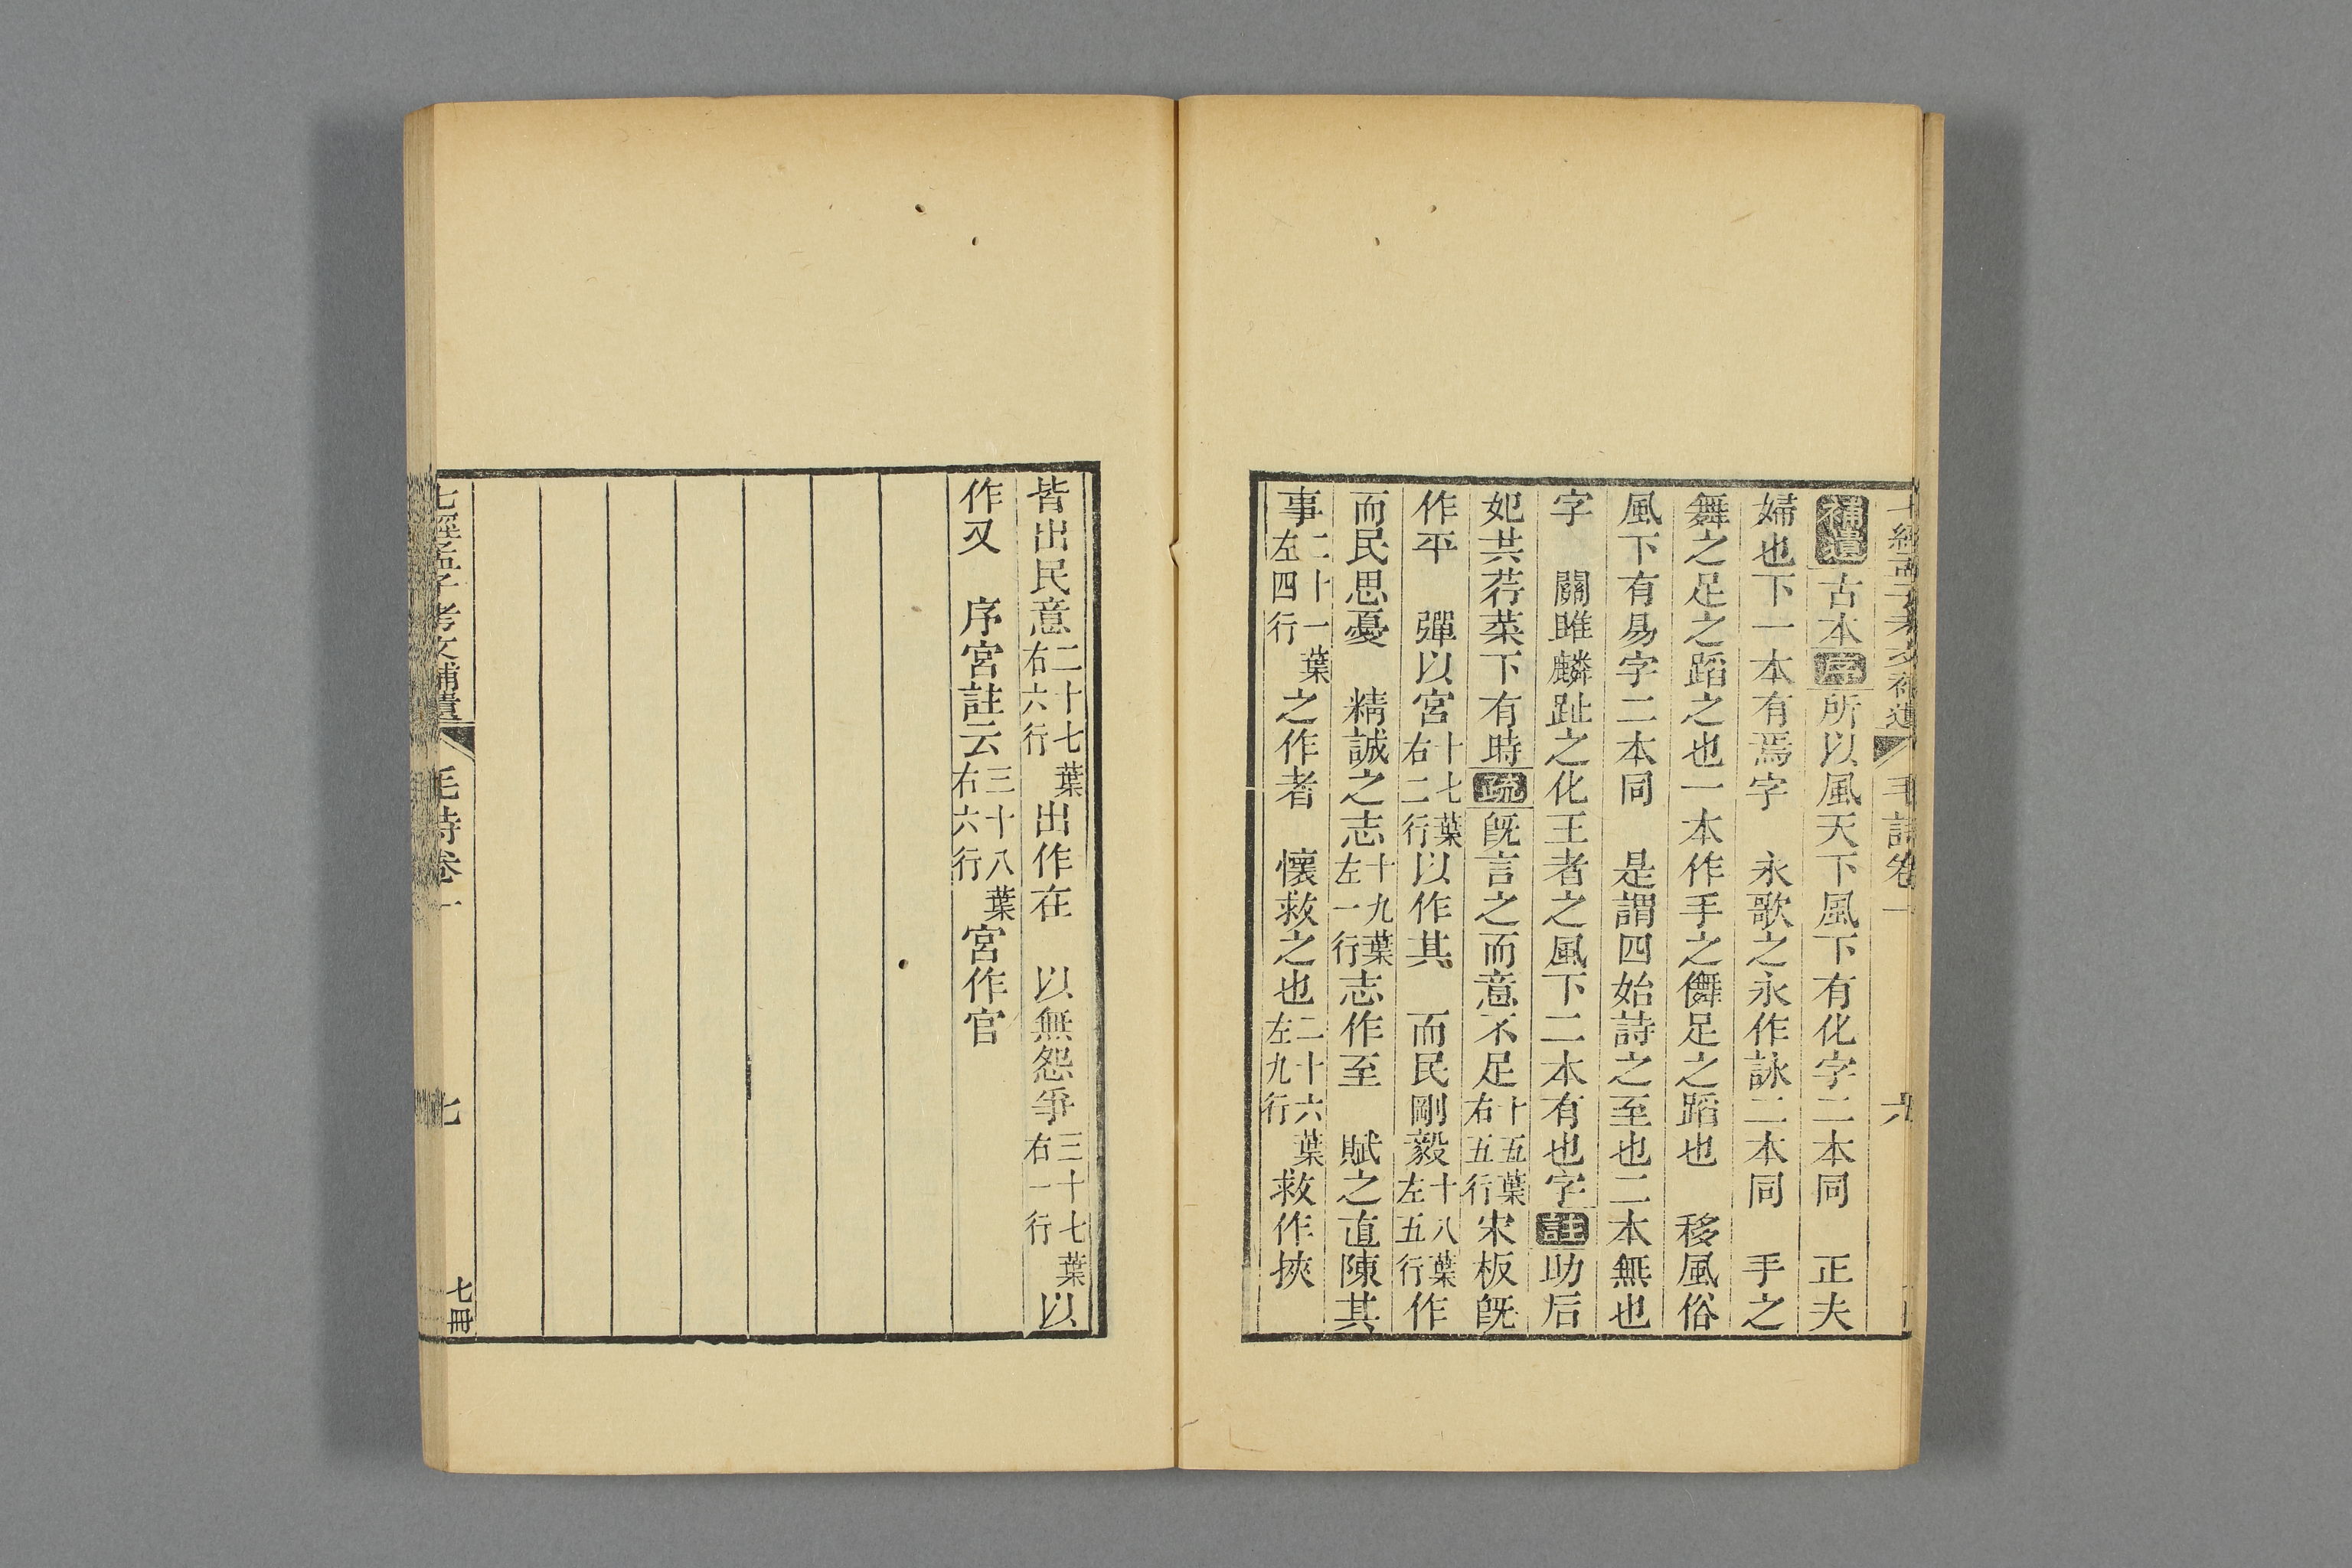 七經孟子考文補遺 毛詩卷一 六
補遺古本序所以風天下風下有化字二本同 正夫
婦也下一本有焉字 永歌之永作詠二本同 手之
舞之足之蹈之也一本作手之儛足之蹈也 移風俗
風下有易字二本同 是謂四始詩之至也二本無也
字 關雎麟趾之化王者之風下二本有也字註助后
妃共荇菜下有時疏旣言之而意不足十五葉右五行宋板旣
作平 彈以宮十七葉右二行以作其 而民剛毅十八葉左五行作
而民思憂 精誠之志十九葉左一行志作至 賦之直陳其
事二十一葉左四行之作者 懷救之也二十六葉左九行救作挾
皆出民意二十七葉右六行出作在 以無怨爭三十七葉右一行以
作又 序宮註云三十八葉右六行宮作官
七經孟子考文補遺 毛詩卷一 七 七冊